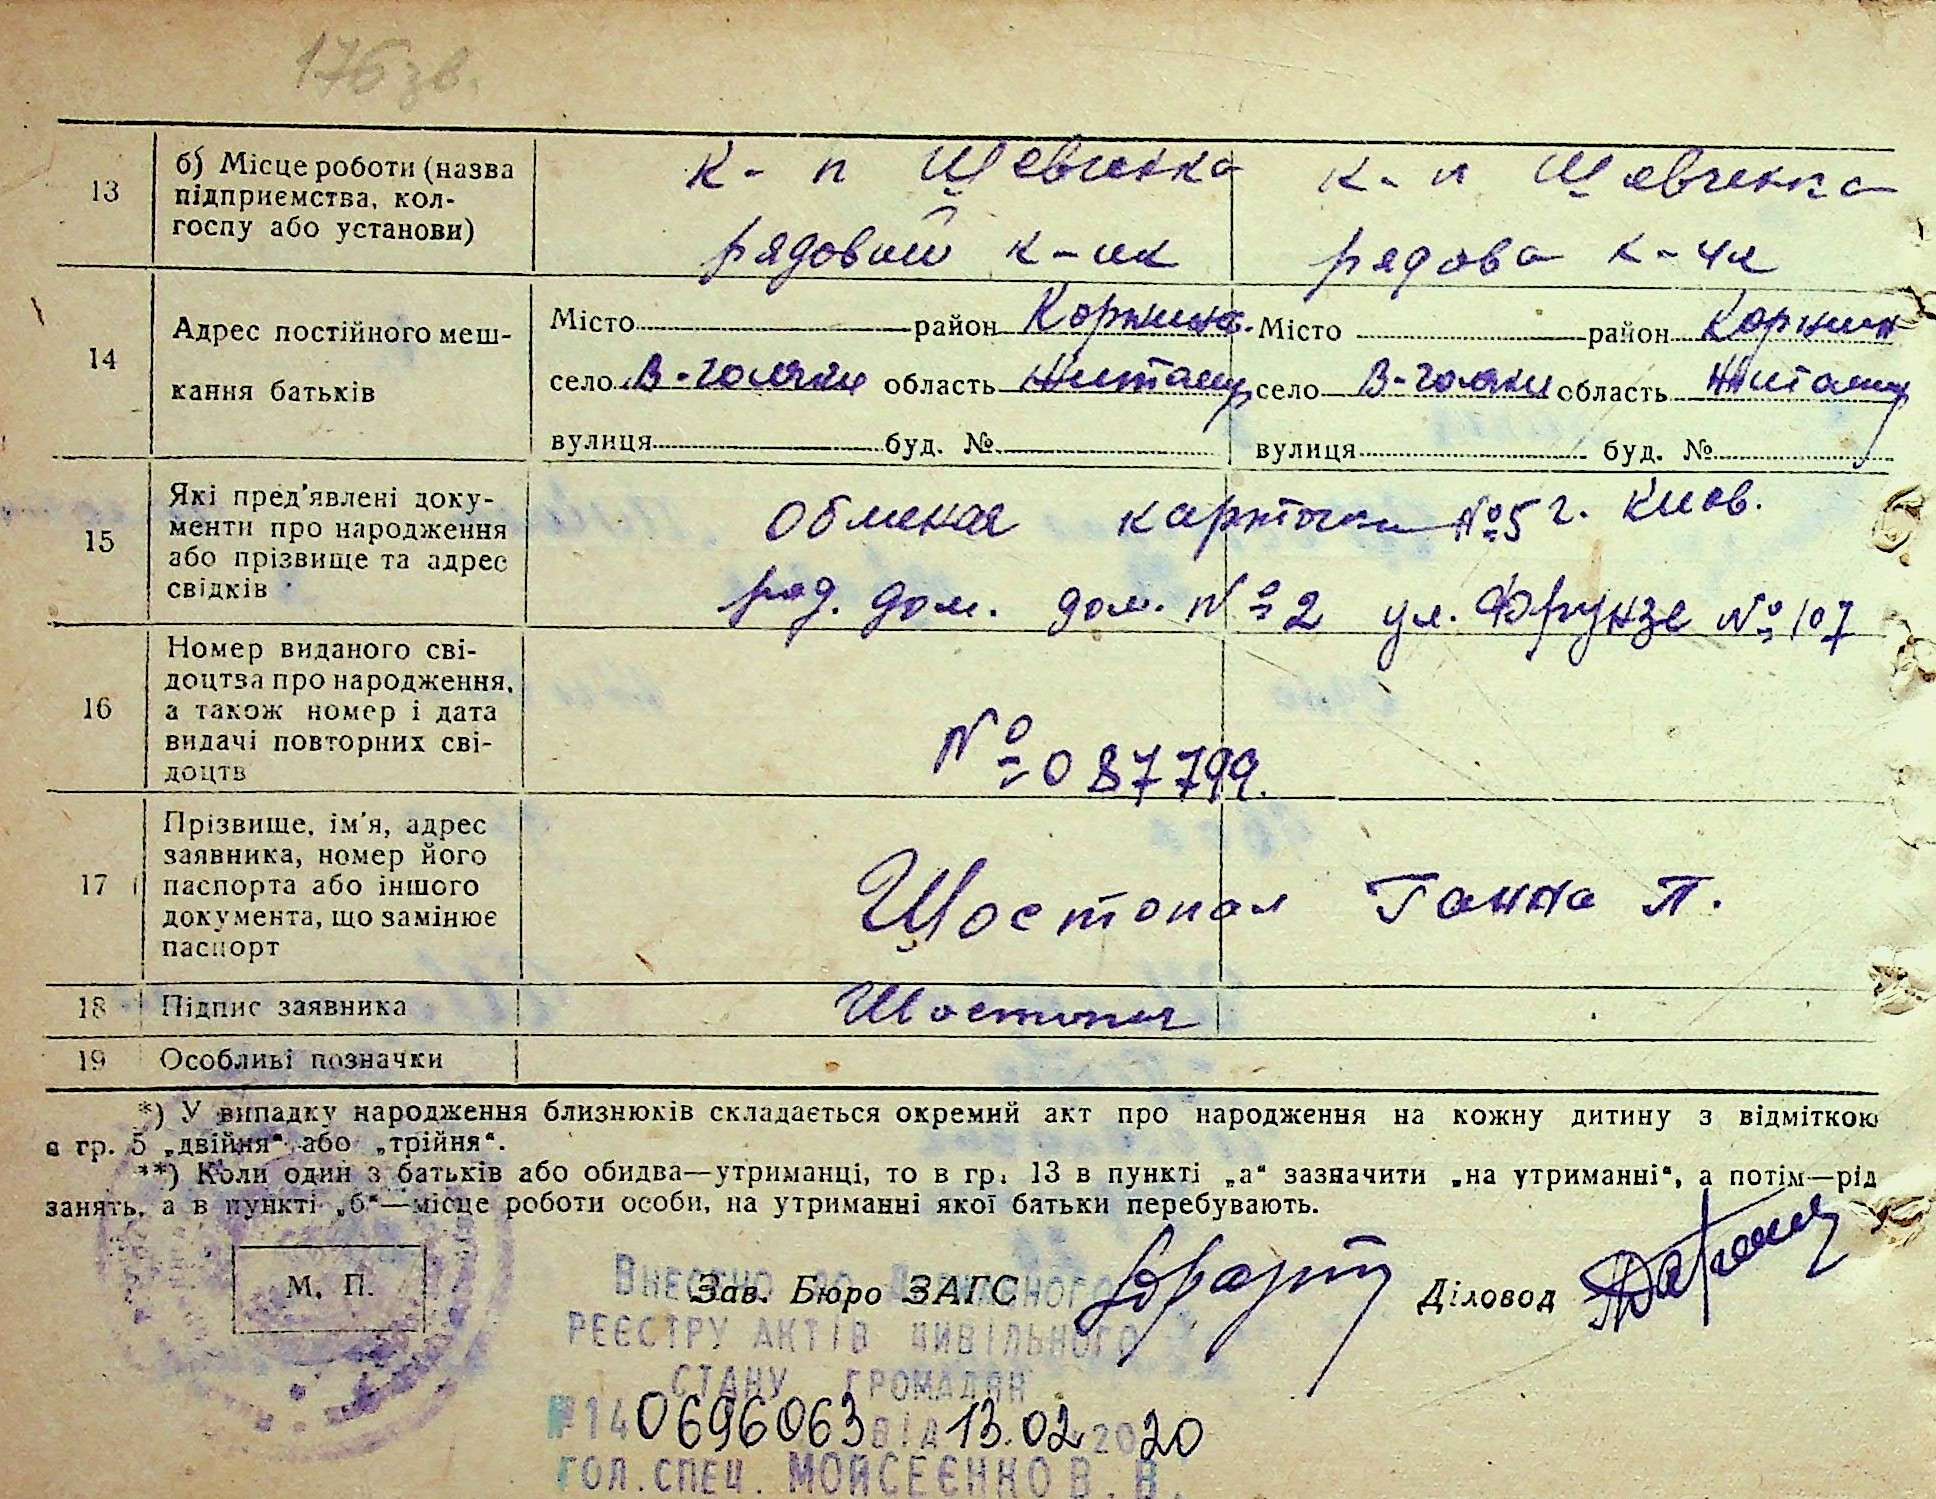 176 зв.
13
б) Місце роботи (назва
підприємства, кол-
госпу або установи)
к-п Шевченка
рядовий к-ик
к-п Шевченка
рядова к-ця
14
Адрес постійного меш-
кання батьків
Місто район Корнин.
село В-голяки область Житомир
вулиця буд. №
Місто район Корнин
село В-голяки область Житомир
вулиця буд. №
15
Які пред'явлені доку-
менти про народження
або прізвище та адрес
свідків
Обменая карточка №5 г. Киов.
род. дом. дом. №2 ул. Фрунзе №107
16
Номер виданого сві-
доцтва про народження,
а також номер і дата
видачі повторних сві-
доцтв
№087799.
17
Прізвище, ім'я, адрес
заявника, номер його
паспорта або іншого
документа, що замінює
паспорт
Шостопал Ганна П.
18
Підпис заявника
Шостопал
19
Особливі позначки
*) У випадку народження близнюків складається окремий акт про народження на кожну дитину з відміткою
в гр. 5 „двійня“ або „трійня“.
**) Коли один з батьків або обидва—утриманці, то в гр. 13 в пункті „а“ зазначити „на утриманні“, а потім—рід
занять, а в пункті „б“—місце роботи особи, на утриманні якої батьки перебувають.
М. П.
Зав. Бюро ЗАГС
Діловод
Внесено до Державного
реєстру актів цивільного
стану громадян
№140696063 від 13.02 2020
гол.спец. Мойсеєнко В. В.